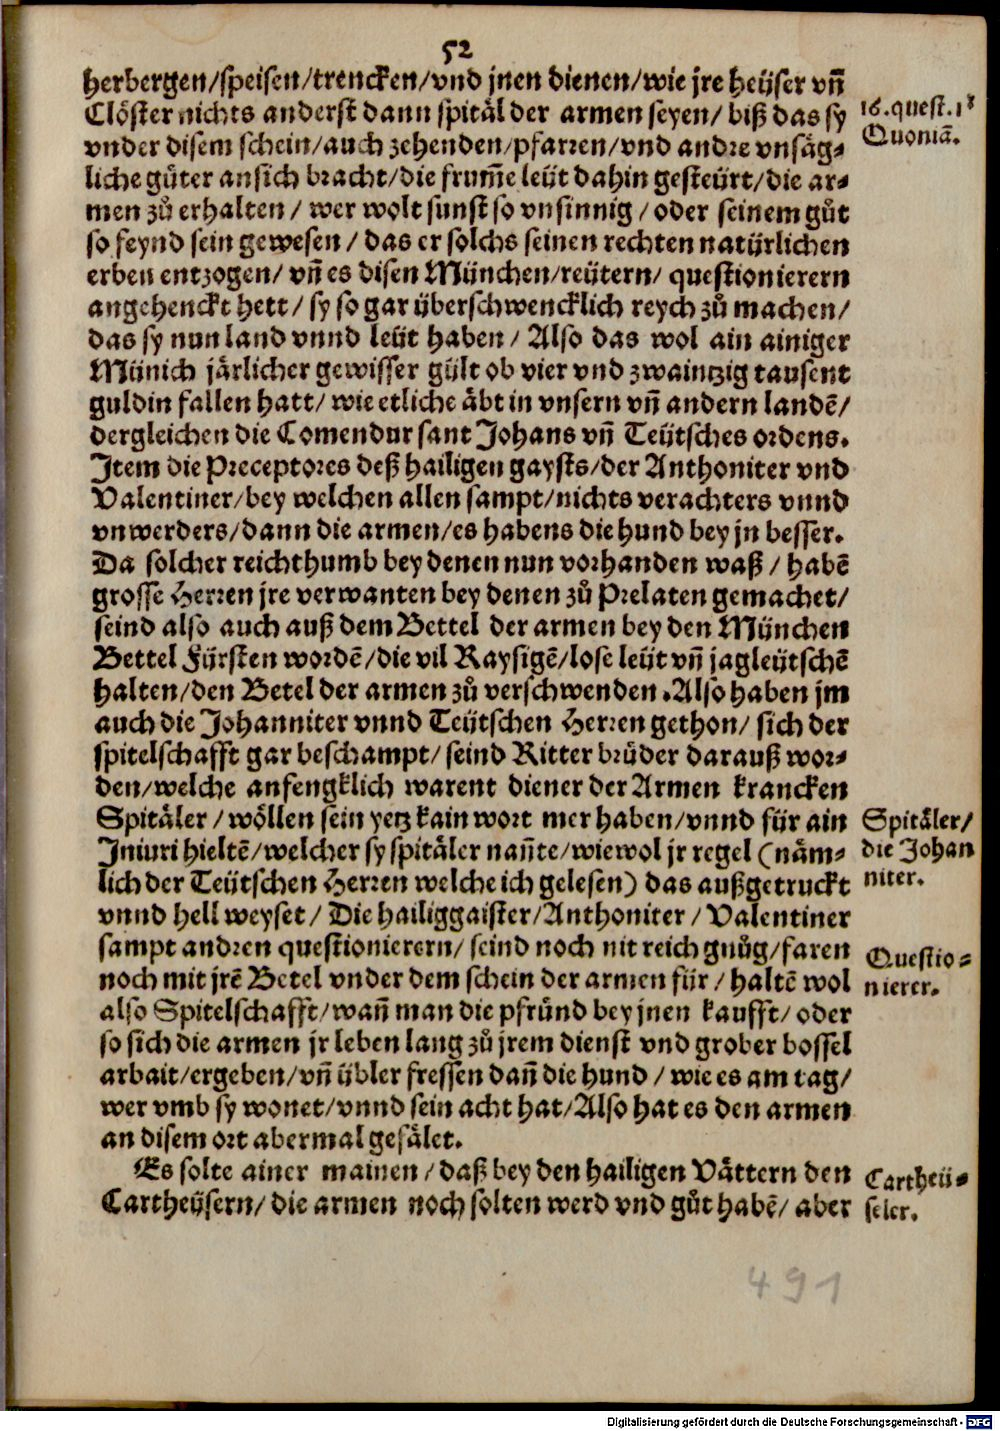 52
herbergen/speisen/trencken/vnd jnen dienen/wie jre heüser vñ
Clöster nichts anderst dann spitäl der armen seyen/ biß das sy
16.quest.1
Quoniã.
vnder disem schein/auch zehenden/pfarren/vnd andre vnsäg-
liche güter an sich bracht/die frum̃e leüt dahin gesteürt/die ar-
men zů erhalten/ wer wolt sunst so vnsinnig/oder seinem gůt
so feynd sein gewesen/ das er solchs seinen rechten natürlichen
erben entzogen/ vñ es disen München/reütern/ questionierern
angehenckt hett/ sy so gar überschwencklich reych zů machen/
das sy nun land vnnd leüt haben/ Also das wol ain ainiger
Münich järlicher gewisser gült ob vier vnd zwaintzig tausent
guldin fallen hatt/ wie etliche äbt in vnsern vñ andern landẽ/
dergleichen die Comendur sant Johans vñ Teütsches ordens.
Item die Preceptores deß hailigen gaysts/der Anthoniter vnd
Valentiner/bey welchen allen sampt/nichts verachters vnnd
vnwerders/dann die armen/es habens die hund bey jn besser.
Da solcher reichthumb bey denen nun vorhanden waß/ habẽ
grosse Herren jre verwanten bey denen zů Prelaten gemachet/
seind also auch auß dem Bettel der armen bey den München
Bettel Fürsten wordẽ/die vil Raysigẽ/lose leüt vñ jagleütschẽ
halten/den Betel der armen zů verschwenden. Also haben jm
auch die Johanniter vnnd Teütschen Herren gethon/ sich der
spitelschafft gar beschampt/ seind Ritter brüder darauß wor-
den/welche anfengklich warent diener der Armen krancken
Spitäler/ wöllen sein yetz kain wort mer haben/vnnd für ain
Spitäler/
Iniuri hieltẽ/welcher sy spitäler nañte/wiewol jr regel (näm-
die Johan
lich der Teütschen Herren welche ich gelesen) das außgetruckt
niter.
vnnd hell weyset/ Die hailiggaister/Anthoniter/ Valentiner
sampt andren questionierern/ seind noch nit reich gnůg/faren
Questio-
noch mit jrẽ Betel vnder dem schein der armen für/ haltẽ wol
nierer.
also Spitelschafft/wañ man die pfründ bey jnen kaufft/ oder
so sich die armen jr leben lang zů jrem dienst vnd grober bossel
arbait/ergeben/vñ übler fressen dañ die hund/ wie es am tag/
wer vmb sy wonet/vnnd sein acht hat/Also hat es den armen
an disem ort abermal gefälet.
Es solte ainer mainen/daß bey den hailigen Vättern den
Cartheü-
Cartheüsern/ die armen noch solten werd vnd gůt habẽ/ aber
seler.
491
Digitalisierung gefördert durch die Deutsche Forschungsgemeinschaft - DFG